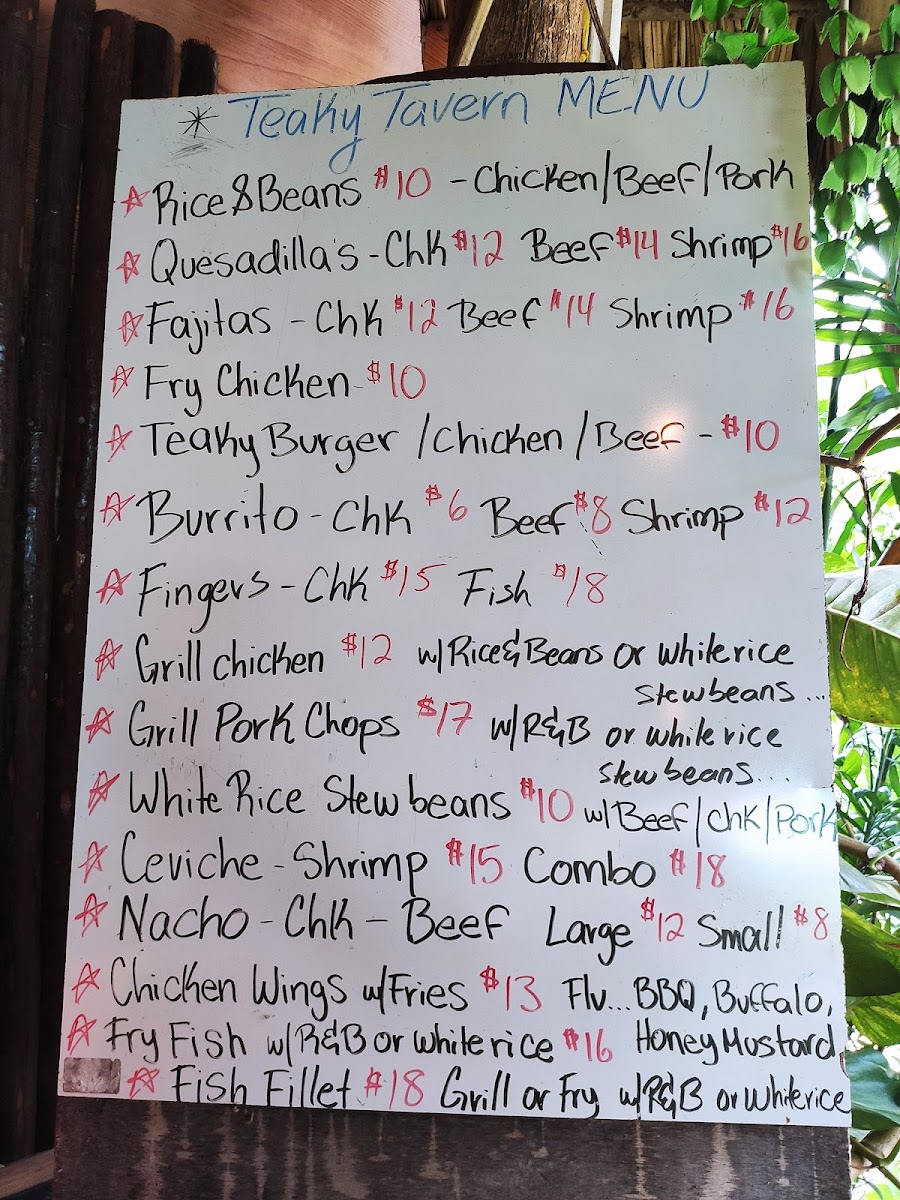 * Teaky Tavern MENU
☆ Rice & Beans $10 - Chicken/Beef/Pork
☆ Quesadilla's - Chk $12 Beef $14 Shrimp $16
☆ Fajitas - Chk $12 Beef $14 Shrimp $16
☆ Fry Chicken $10
☆ Teaky Burger /Chicken /Beef - $10
☆ Burrito - Chk $6 Beef $8 Shrimp $12
☆ Fingers - Chk $15 Fish $18
☆ Grill chicken $12 w/Rice&Beans or white rice
stew beans ...
☆ Grill Pork Chops $17 w/R&B or white rice
stew beans....
☆ White Rice Stew beans $10 w/Beef/Chk/Pork
☆ Ceviche - Shrimp $15 Combo $18
☆ Nacho - Chk - Beef Large $12 Small $8
☆ Chicken Wings w/Fries $13 Flv... BBQ, Buffalo,
☆ Fry Fish w/R&B or white rice $16 Honey Mustard
☆ Fish Fillet $18 Grill or Fry w/R&B or white rice